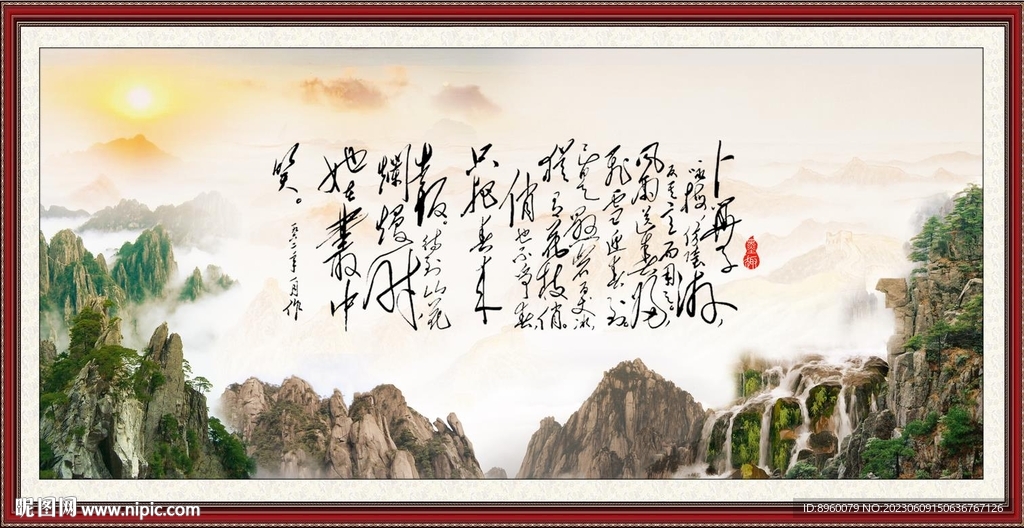 卜算子
咏梅
反其意而用之。
风雨送春归
飞雪迎春到
已是悬崖百丈冰，
犹有花枝俏。
俏也不争春，
只把春来
报。待到山花
烂漫时
她在丛中
笑。
一九六二年一月作
昵图网 www.nipic.com
ID:8960079 NO:20230609150636767126